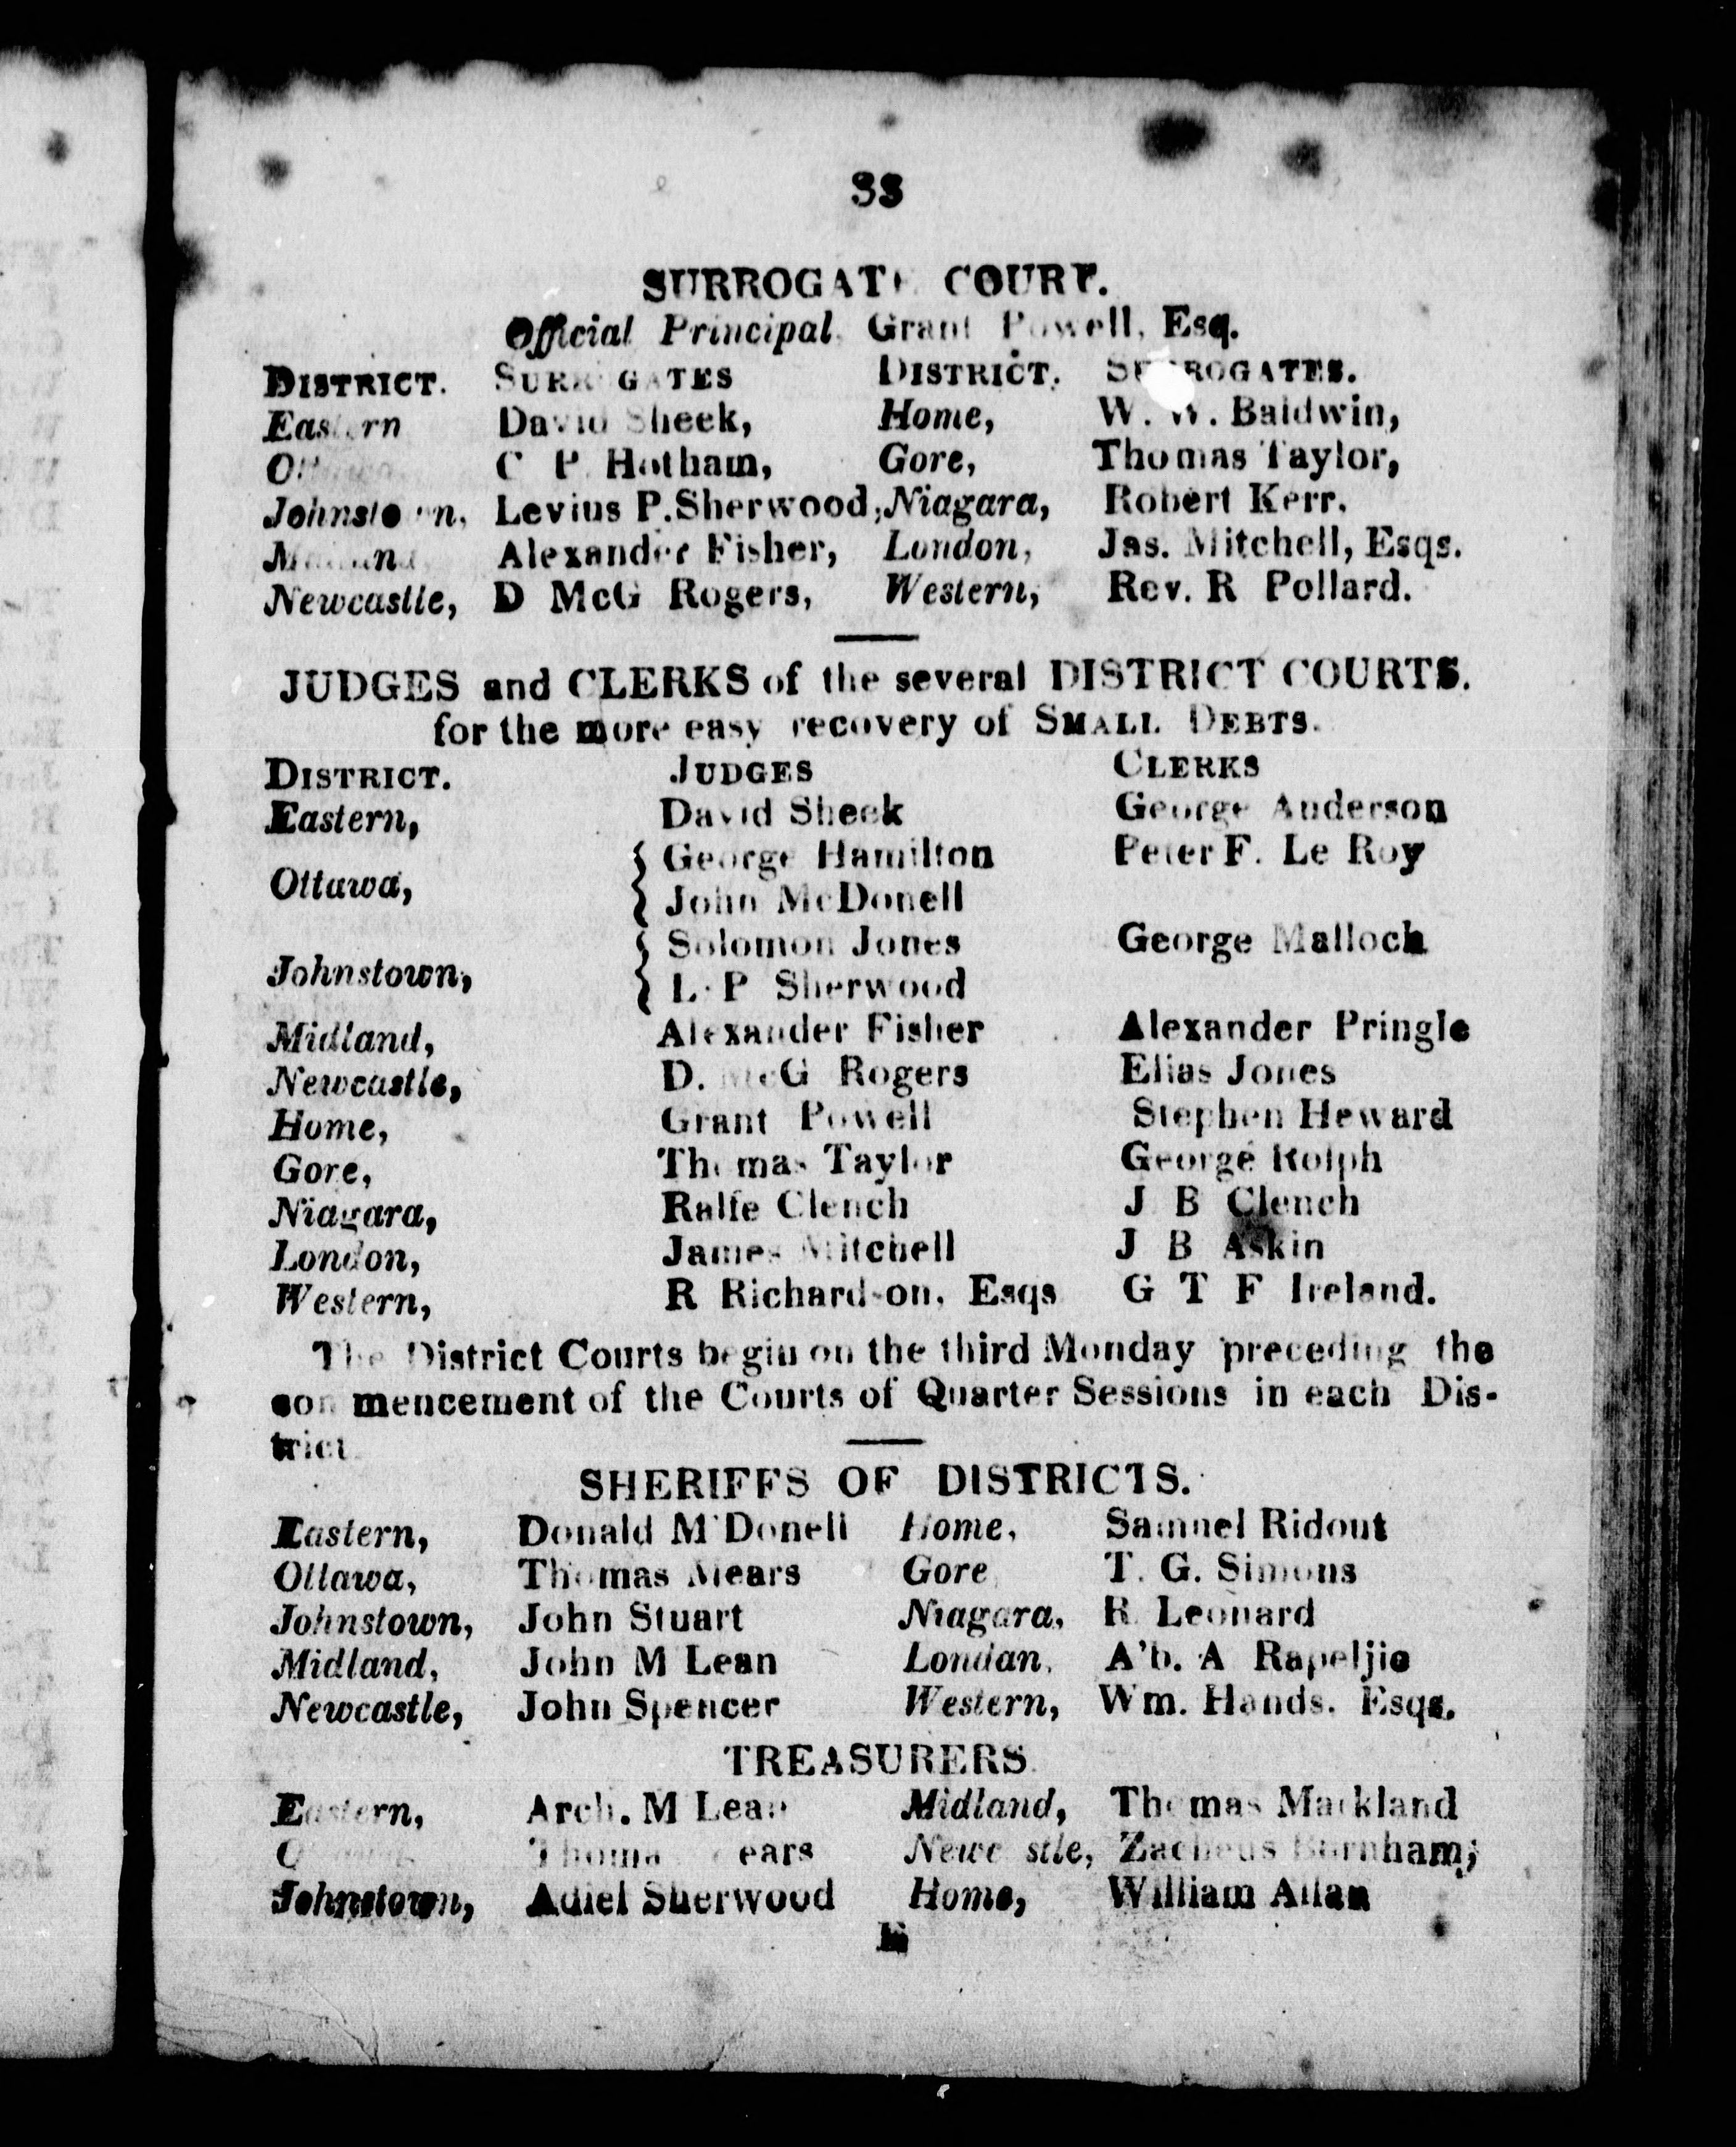 33
SURROGATE COURT.
Official Principal Grant Powell, Esq.
DISTRICT. SURROGATES DISTRICT. SURROGATES.
Eastern David Sheek, Home, W. W. Baldwin,
C P Hotham, Gore, Thomas Taylor,
Johnstown, Levius P. Sherwood, Niagara, Robert Kerr,
Alexander Fisher, London, Jas. Mitchell, Esqs.
Newcastle, D McG Rogers, Western, Rev. R Pollard.
JUDGES and CLERKS of the several DISTRICT COURTS.
for the more easy recovery of SMALL DEBTS.
DISTRICT. JUDGES CLERKS
Eastern, David Sheek George Anderson
Ottawa, { George Hamilton Peter F. Le Roy
{ John McDonell
Johnstown, { Solomon Jones George Malloch
{ L. P Sherwood
Midland, Alexander Fisher Alexander Pringle
Newcastle, D. McG Rogers Elias Jones
Home, Grant Powell Stephen Heward
Gore, Thomas Taylor George Rolph
Niagara, Ralfe Clench J B Clench
London, James Mitchell J B Askin
Western, R Richardson, Esqs G T F Ireland.
The District Courts begin on the third Monday preceding the
commencement of the Courts of Quarter Sessions in each Dis-
trict
SHERIFFS OF DISTRICTS.
Eastern, Donald M'Donell Home, Samuel Ridout
Ottawa, Thomas Mears Gore T. G. Simons
Johnstown, John Stuart Niagara, R Leonard
Midland, John M Lean Londan, A'b. A Rapeljie
Newcastle, John Spencer Western, Wm. Hands. Esqs.
TREASURERS
Eastern, Arch. M Lean Midland, Thomas Markland
Newcastle, Zacheus Burnham;
Johnstown, Adiel Sherwood Home, William Allan